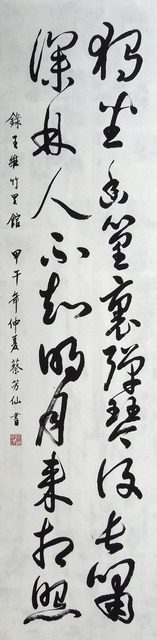 独坐幽篁裏弹琴復长啸
深林人不知明月来相照
錄王維竹里館 甲午年仲夏蔡芳仙書